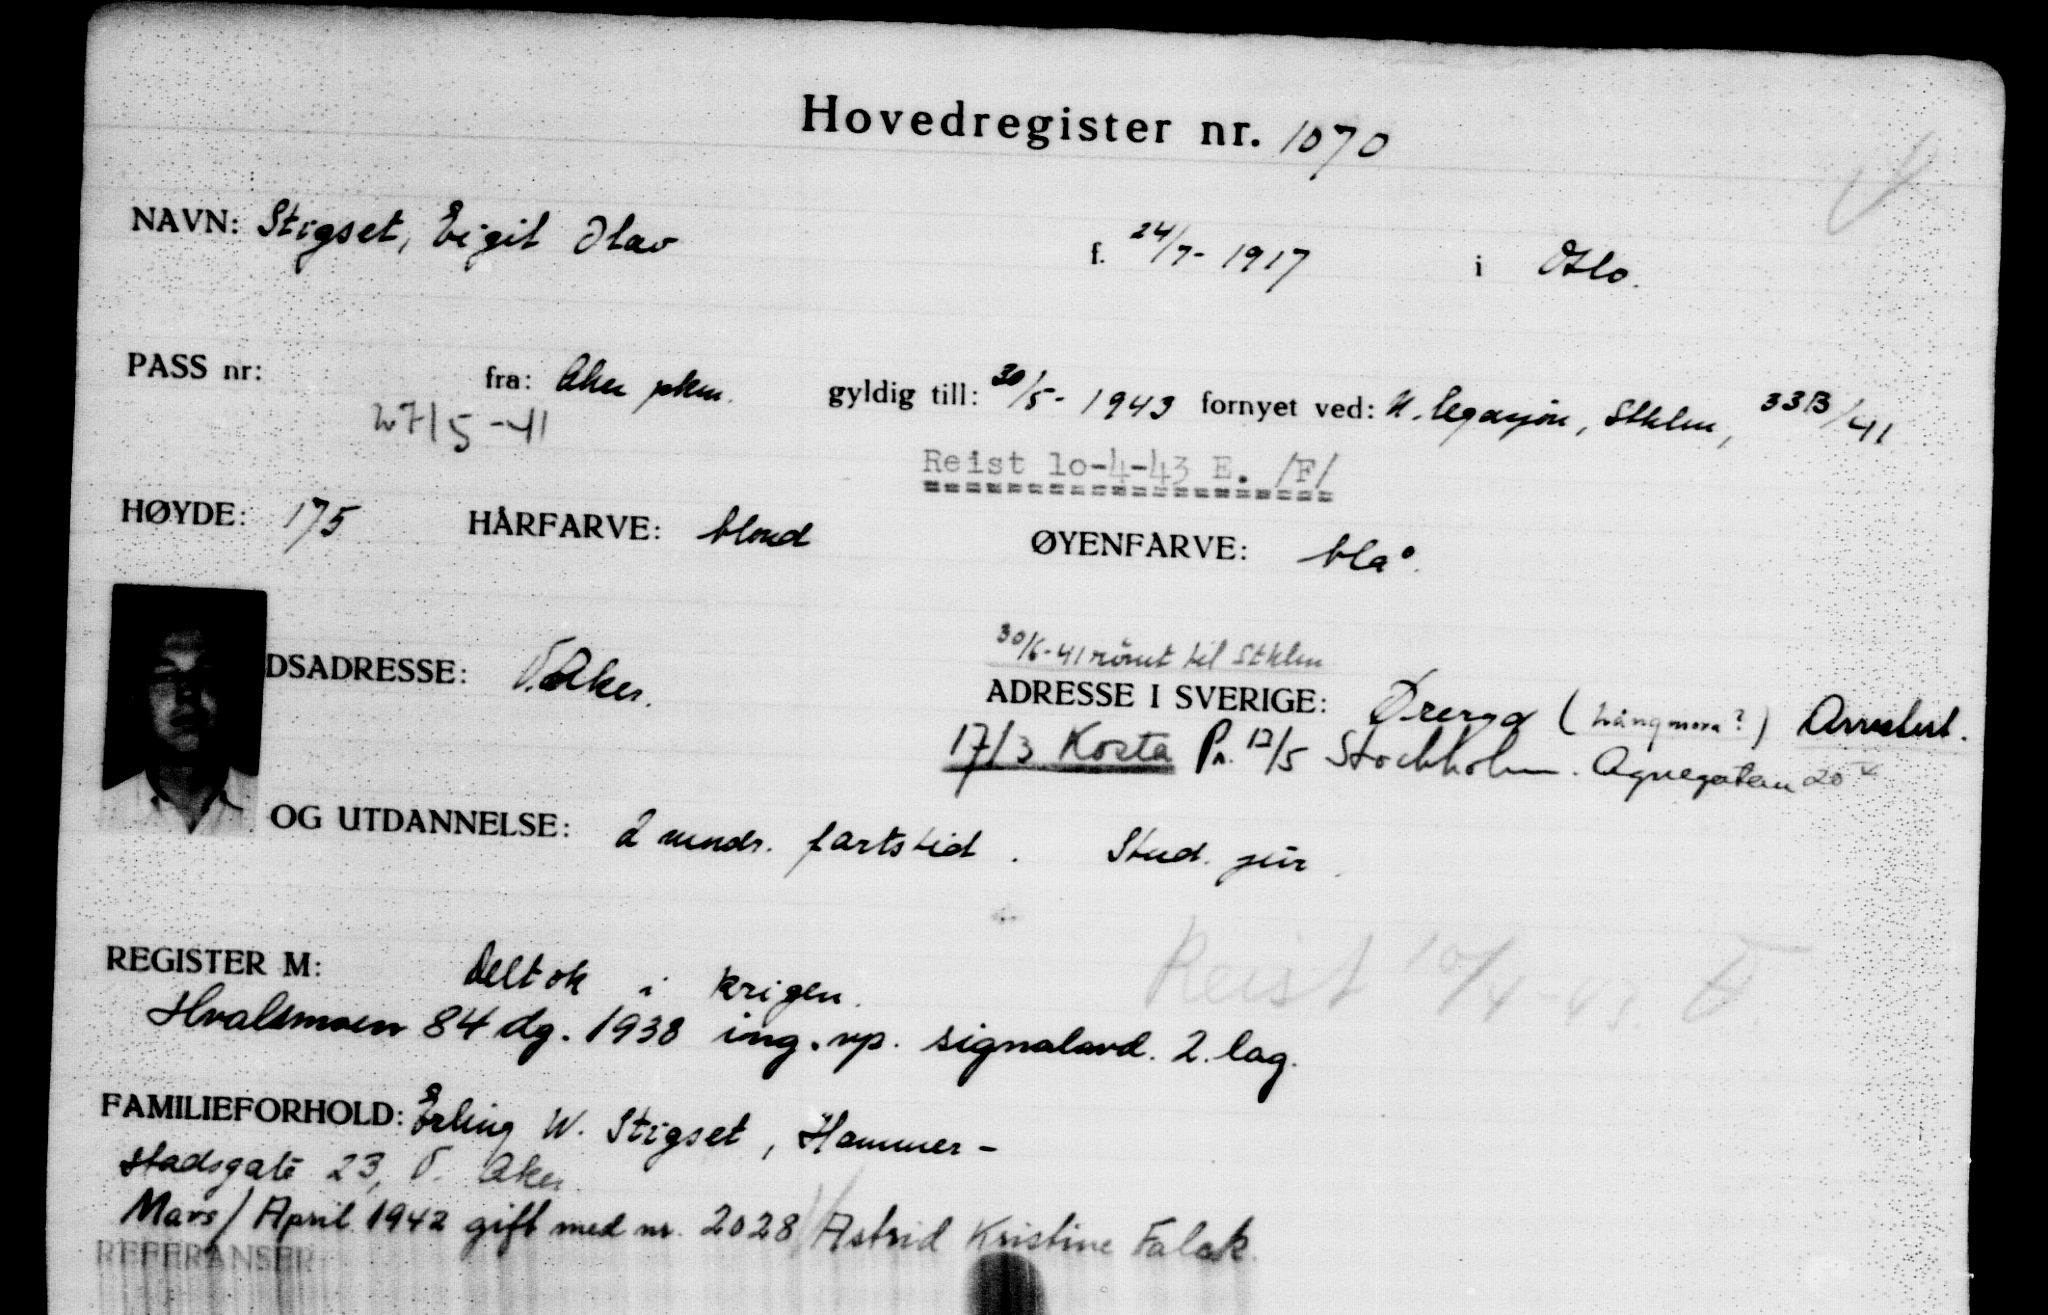 Hovedregister nr. 1070
NAVN: Stigset, Eigil Olav f. 24/7-1917 i Oslo.
PASS nr: fra: Aker pkm. gyldig till: 30/5-1943 fornyet ved: N. legasjon, Sthlm, 33B/41
27/5-41
Reist 10-4-43 E. /F/
HØYDE: 175 HÅRFARVE: blond ØYENFARVE: blå.
30/6-41 römt til Sthlm
DSADRESSE: V. Aker. ADRESSE I SVERIGE: Øreryd (Långmora?)
17/3 Kosta Pr. 12/5 Stockholm. Agnegatan 20
OG UTDANNELSE: 2 mndr. fartstid. Stud. jur.
REGISTER M: Deltok i krigen.
Reist 10/4-43
Hvalsmoen 84 dg. 1938 ing. vp. signalavd. 2. lag.
FAMILIEFORHOLD: Erling W. Stigset, Hammer-
stadsgate 23, V. Aker.
Mars/April 1942 gift med nr. 2028 / Astrid Kristine Falck.
REFERANSER